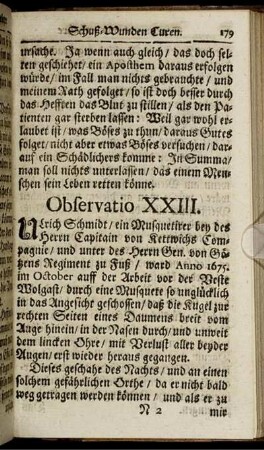 Schuß-Wunden Curen. 179
ursache. Ja wenn auch gleich / das doch sel-
ten geschiehet / ein Aposthem daraus erfolgen
würde / im Fall man nichts gebrauchte / und
meinem Rath gefolget / so ist doch besser durch
das Hefften das Blut zu stillen / als den Pa-
tienten gar sterben lassen: Weil gar wohl er-
laubet ist / was Böses zu thun / daraus Gutes
folget / nicht aber etwas Böses versuchen / dar-
auf ein Schädlichers komme: In Summa /
man soll nichts unterlassen / das einem Men-
schen sein Leben retten könne.
Observatio XXIII.
Ulrich Schmidt / ein Musquetirer bey des
Herrn Capitain von Kettwichs Com-
pagnie / und unter des Herrn Gen. von Gö-
tzens Regiment zu Fuß / ward Anno 1675.
im October auff der Arbeit vor der Veste
Wolgast / durch eine Musquete so unglücklich
in das Angesicht geschossen / daß die Kugel zur
rechten Seiten eines Daumens breit vom
Auge hinein / in der Nasen durch / und unweit
dem lincken Ohre / mit Verlust aller beyder
Augen / erst wieder heraus gegangen.
Dieses geschahe des Nachts / und an einen
solchem gefährlichen Orthe / da er nicht bald
weg getragen werden können / und als er zu
N 2 mir